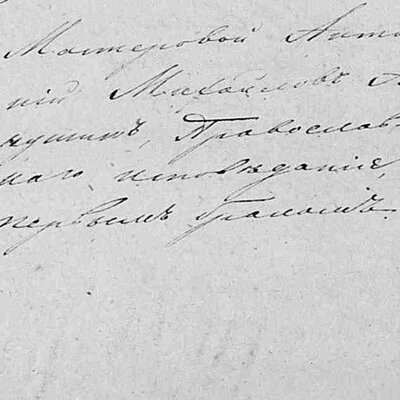 Мастеровой Анто
ній Михайловъ
Православ-
наго исповѣданія,
первымъ бракомъ.